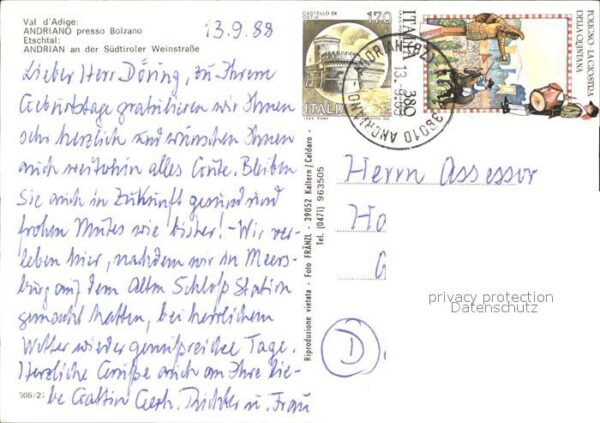 Val d'Adige:
ANDRIANO presso Bolzano
Etschtal:
ANDRIAN an der Südtiroler Weinstraße
13.9.88
Lieber Herr Döring, zu Ihrem
Geburtstage gratulieren wir Ihnen
sehr herzlich und wünschen Ihnen
auch weiterhin alles Gute. Bleiben
Sie auch in Zukunft gesund und
frohen Mutes wie bisher! - Wir ver-
leben hier, nachdem wir in Meers-
burg auf dem Alten Schloß Station
gemacht hatten, bei herrlichem
Wetter wieder genußreiche Tage.
Herzliche Grüße auch an Ihre lie-
be Gattin Gerh. Richter u. Frau
506/21
Riproduzione vietata - Foto FRÄNZL - 39052 Kaltern/Caldaro -
Tel. (0471) 963505
CASTELLO DI
OSTIA
170
ITALIA
ITALIA
380
FOLIGNO · LA GIOSTRA
DELLA QUINTANA
39010 ANDRIANO
ANDRIAN (BZ)
13.9.88
Herrn Assessor
Ho
G
privacy protection
Datenschutz
D